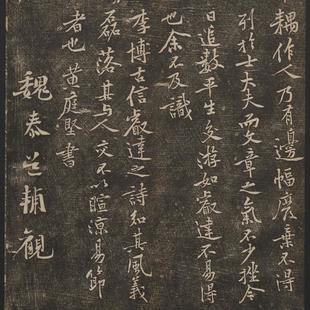 耦作人乃有邊幅廢棄不得
列於士大夫而文章之氣不少挫今
日追數平生交游如叡達不易得
也余不及識
李博古信叡達之詩知其風義
磊落其与人交不以暄涼易節
者也黄庭堅書
魏泰道輔觀